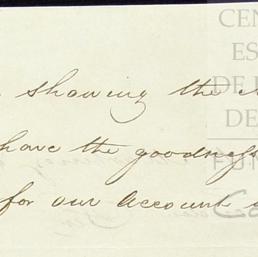 CEN
ES
DE
DE
FU
showing the
have the goodness
for our account